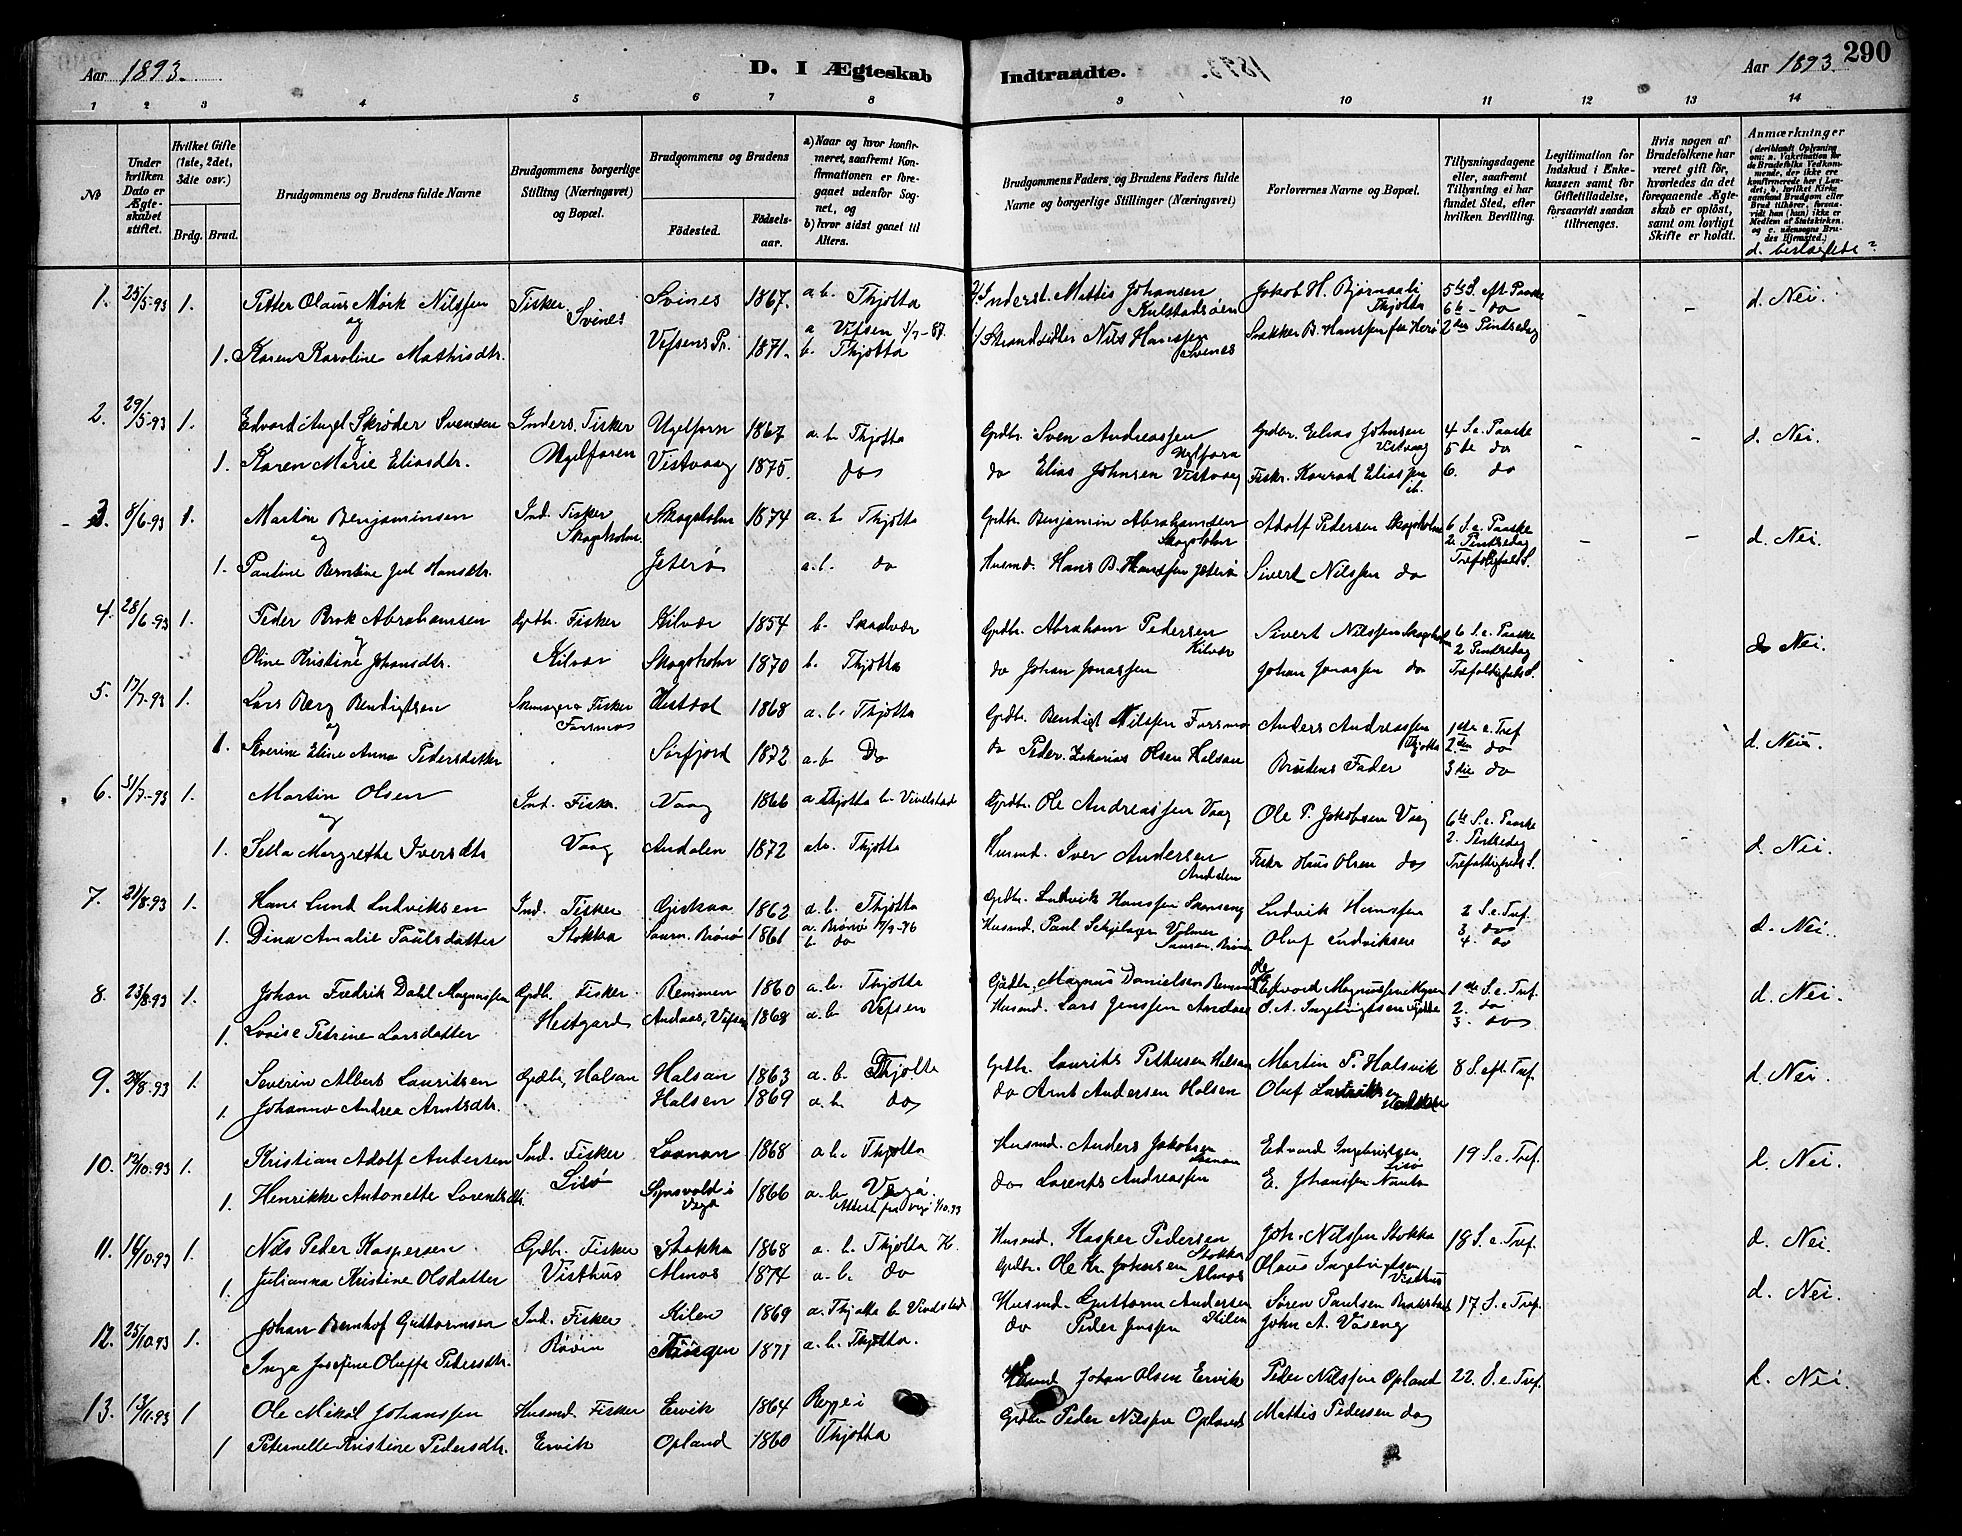 290
Aar 1893.
D. I Ægteskab
Indtraadte.
1893.
Aar 1893.
1 2 3 4 5 6 7 8 9 10 11 12 13 14
№
Under hvilken Dato er Ægteskabet stiftet.
Hvilket Gifte (1ste, 2det, 3die osv.)
Brdg. Brud.
Brudgommens og Brudens fulde Navne
Brudgommens borgerlige Stilling (Næringsvei) og Bopæl.
Brudgommens og Brudens
Födested.
Födsels-aar.
a) Naar og hvor konfirmeret, saafremt Konfirmationen er foregaaet udenfor Sognet, og
b) hvor sidst gaaet til Alters.
Brudgommens Faders og Brudens Faders fulde Navne og borgerlige Stillinger (Næringsvei)
Forlovernes Navne og Bopæl.
Tillysningsdagene eller, saafremt Tillysning ei har fundet Sted, efter hvilken Bevilling.
Legitimation for Indskud i Enkekassen samt for Giftetilladelse, forsaavidt saadan tiltrænges.
Hvis nogen af Brudefolkene har været gift för, hvorledes da det foregaaende Ægteskab er oplöst, samt om lovligt Skifte er holdt.
Anmærkninger
d. beslægtede?
1. 25/5-93 1. Petter Olaus Mörk Nilssen Fisker Svines 1867. a.b. Thjøtta Inderst. Mattis Johansen Kulstadsøen Jakob H. Bjørnaali Thjøtta 5te S. eft. Paaske 6te do d. Nei.
og Svines
1. Karen Karoline Mathisdtr. Vefsens Pr. 1871. a Vefsen b. Thjøtta Strandsidder Nils Hanssen Svines B. Hanssen fra Herø 2den Pintsedag
2. 29/5-93 1. Edvard Angel Skrøder Svensen Inders. Fisker Ugelforn 1867 a.b. Thjøtta Grdbr. Sven Andreassen Grdbr. Elias Johnsen Vistvaag 4 S.e. Paaske d. Nei.
og 5te do
1. Karen Marie Eliasdtr. Vistvaag 1875. do do Elias Johnsen Vistvaag Fiskr. Konrad Eliassen ib. 6. do
3. 8/6-93 1. Martin Benjaminsen Ind. Fisker Skogsholm 1874 a.b. Thjøtta Grdbr. Benjamin Abrahamsen Skogsholm Adolf Pedersen Skogsholm 6 S.e. Paaske d. Nei.
og Skogsholm. 2. Pintsedag
1. Pauline Berntine Hansdtr. Jeterø a.b. do Husmd. Hans B. Hanssen Jeterø Sivert Nilssen do Trefoldigheds S.
4. 28/6-93 1. Peder Brok Abrahamsen Grdbr. Fisker Kilvær 1854 b. Skaalvær Grdbr. Abraham Pedersen Kilvær Sivert Nilssen Skogsholm 6 S.e. Paaske d. Nei.
og 2 Pintsedag
Oline Kristine Johansdtr. Kilvær Skogsholm 1870 b. Thjøtta do Johan Jonassen Johan Jonassen do Trefoldigheds S.
5. 17/7-93 1. Lars Berg Bendigtsen Skomager Fisker 1868 a.b. Thjøtta Grdbr. Bendigt Nilssen Forsmo Anders Andreassen Thjøtta 1ste e. Tref
og Forsmo 2den do d. Nei.
1. Severine Eline Anna Pedersdatter Sørfjord 1872 a.b Do do Peder Zakarias Olsen Halsan Brudens Fader 3die do
6. 31/7-93 1. Martin Olsen Ind. Fisker. Vaag 1866 a. Thjøtta b. Vivelstad Grdbr. Ole Andreassen Vaag Ole P. Jakobsen Vaag 6te S.e. Paaske
og 2. Pintsedag
1. Sella Margrethe Iversdtr Vaag Andalen 1872 a.b. Thjøtta Husmd. Iver Andersen Fiskr Hans Olsen do Trefoldigheds S. d. Nei.
7. 21/8-93 1. Hans Lund Ludviksen Ind. Fisker 1862 a.b. Thjøtta Grdbr. Ludvik Hanssen Ludvik Hanssen 2 S.e. Tref.
1. Dina Amalie Paulsdatter Stokka Brönö 1861 a. Brönö b. do Husmd. Paul Oluf Ludviksen 3. do 4. do d. Nei.
8. 23/8-93 1. Johan Fredrik Dahl Magnussen Grdb. Fisker. Remmen 1860 a.b. Thjøtta Grdbr. Magnus Danielsen Ole Edvard Magnussen 1ste S.e. Tref. d. Nei.
1. Lovise Petrine Larsdatter Hestgard Andaas, Vefsen 1868 a.b Vefsen Husmd. Lars Jenssen Andaas O. A. Ingebrigtsen 2. do 3. do
9. 28/8-93 1. Severin Albert Lauritsen Grdbr, Halsan Halsan 1863 a.b. Thjøtta Grdbr. Laurits Pettersen Halsan Martin P. Halsvik 8 S. eft. Tref. d. Nei.
1. Johanna Andrea Arntsdtr. Halsen 1869 a.b do do Arnt Andersen Halsen Oluf
10. 12/10-93 1. Kristian Adolf Andersen Ind. Fisker 1868 a.b. Thjøtta Husmd. Anders Jakobsen Edvard Ingebrigtsen 19 S.e. Tref. d. Nei.
1. Henrikke Antonette Lorentsdtr. i Vega 1866 a.b Vega. Attest fra Vega 1/10.93 do Lorents Andreassen E. Johanssen
11. 16/10.93 1. Nils Peder Kaspersen Grdbr. Fisker Stokka 1868 a. b. Thjøtta Husmd. Kasper Pedersen Stokka Joh. Nilssen Stokka 18 S.e. Tref. d. Nei.
1. Julianna Kristine Olsdatter Visthus Almos 1874 a.b. do Grdbr. Ole Kr. Johnsen Almos Olaus Ingebrigtsen Visthus
12. 25/10.93 1. Johan Bernhof Guttormsen Ind. Fisker Kilen 1869 a. Thjøtta b. Vivelstad Husmd. Guttorm Andersen Kilen Søren Paulsen 17 S.e Tref. d. Nei.
Inga Josefine Oluffa Pedersdtr. Røvin 1871 a.b. Thjøtta. do Peder Jenssen John A. Vaseng
13. 13/11.93 1 Ole Mikal Johanssen Husmd. Fisker Ervik 1864 Begge i Husmd Johan Olsen Ervik Peder Nilssen Opland 22. S.e Tref. d. Nei.
1 Peternelle Kristine Pedersdtr. Ervik Opland 1860 Thjøtta Grdbr Peder Nilssen Opland Mattis Pedersen do